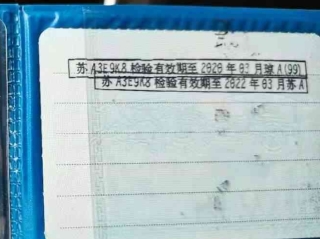 苏 A3E9K8 检验有效期至 2020 年 03 月 苏A(99)
苏 A3E9K8 检验有效期至 2022 年 03 月 苏A